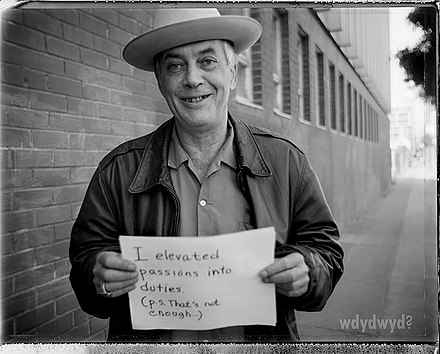 I elevated
passions into
duties.
(p.s. That's not
enough...)
wdydwyd?